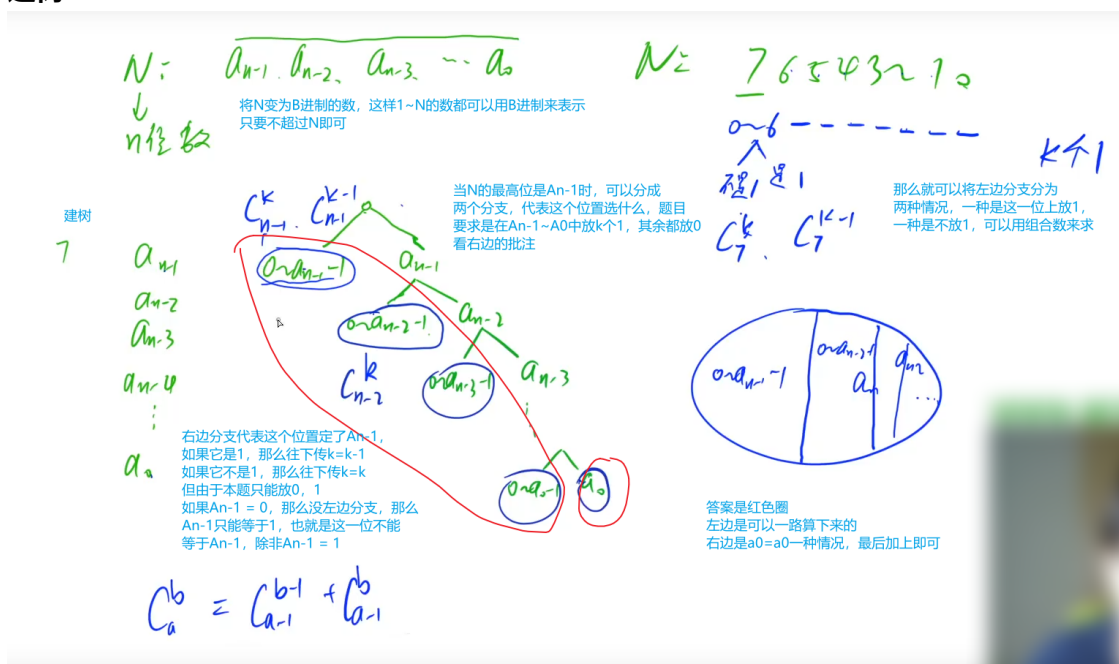 N: an-1 an-2、 an-3、 … a0
↓
n位数
将N变为B进制的数，这样1~N的数都可以用B进制来表示
只要不超过N即可
N: 76543210
0~6 - - - - - - -
不是1 是1
K个1
C7^k、 C7^k-1
那么就可以将左边分支分为
两种情况，一种是这一位上放1，
一种是不放1，可以用组合数来求
当N的最高位是An-1时，可以分成
两个分支，代表这个位置选什么，题目
要求是在An-1~A0中放k个1，其余都放0
看右边的批注
建树
7
Cn-1^k . Cn-1^k-1
an-1
an-2
an-3
an-4
⋮
a0
0~an-1-1 an-1
0~an-2-1 an-2
Cn-2^k
0~an-3-1 an-3
0~a0-1 a0
右边分支代表这个位置定了An-1，
如果它是1，那么往下传k=k-1
如果它不是1，那么往下传k=k
但由于本题只能放0，1
如果An-1 = 0，那么没左边分支，那么
An-1只能等于1，也就是这一位不能
等于An-1，除非An-1 = 1
0~an-1-1 0~an-2-1 an-2 …
an
答案是红色圈
左边是可以一路算下来的
右边是a0=a0一种情况，最后加上即可
Ca^b = Ca-1^b-1 + Ca-1^b